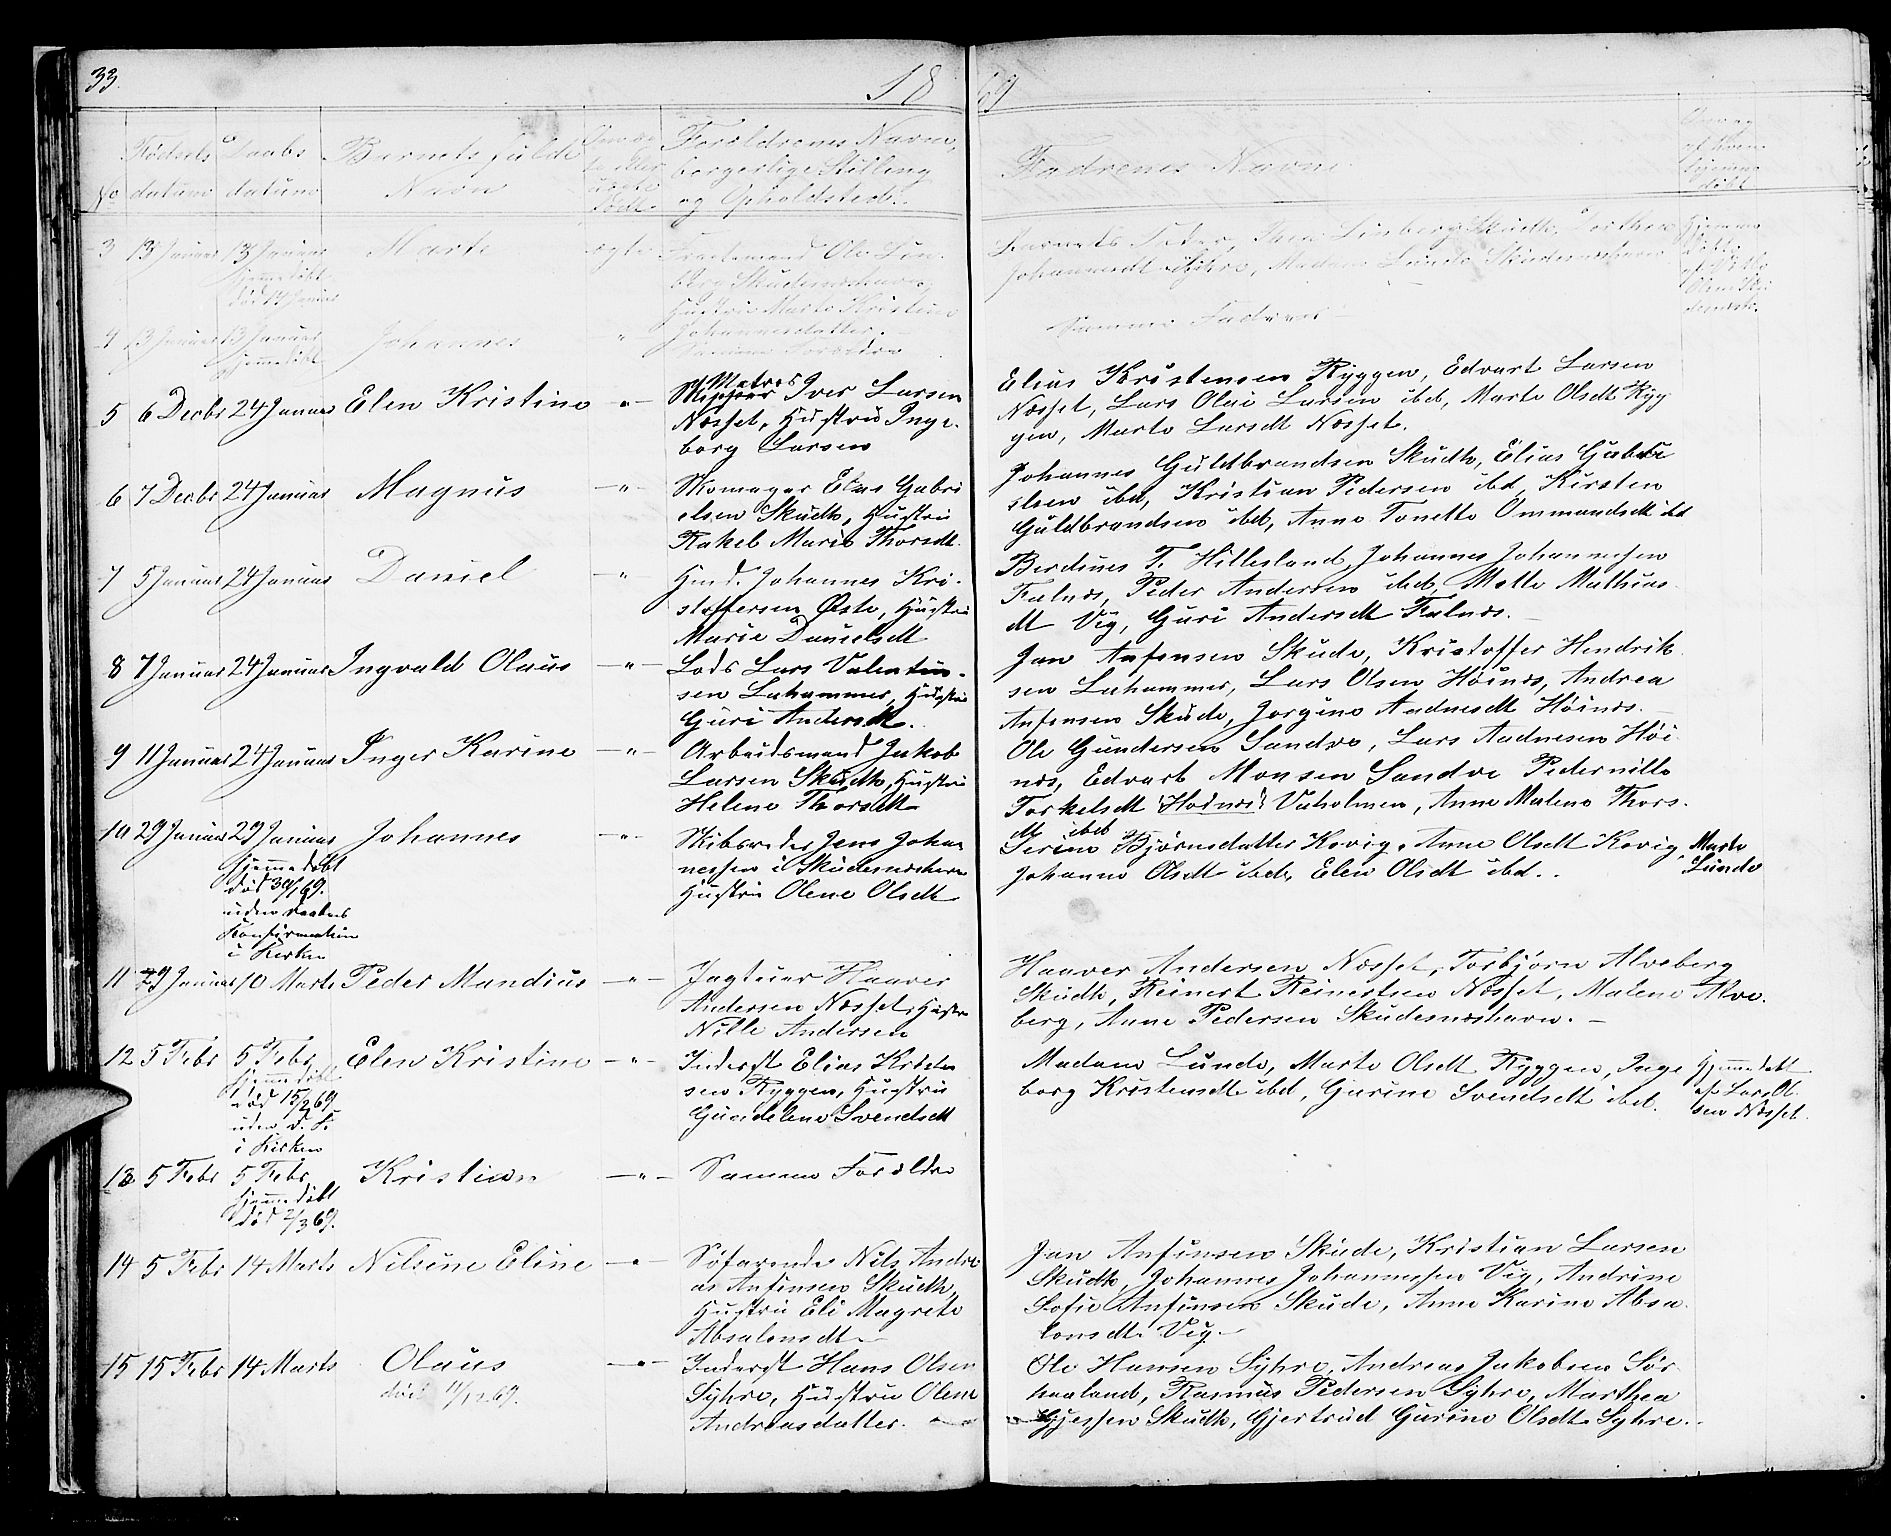 33.
18
69
No
Fødsels
datum
Daabs
datum
Barnets fulde
Navn
Forældrenes Navn,
borgerlige Stilling
og Opholdsted.
Fadrenes Navne
3 13 Januar 13 Januar Marte ægte
Hjemmedøbt
død 17 Januar
Ole Lin-
berg Skudesneshavn,
Hustru Marte Kristine
Johannesdatter.
Barnets Fader, Linberg Skudth, Dorthea
Johannesdt Syhre, Madam Lunde Skudesneshavn
Hjemme
døbt
4 13 Januar 13 Januar Johannes "
Hjemmedøbt
Samme Forældre
Samme Faddere
5 6 Decbr 24 Januar Elen Kristine -"-
Matros
Skipper Iver Larsen
Næsset, Hustru Inge-
borg Larsen
Elias Kristensen Ryggen, Edvart Larsen
Næsset, Lars Olai Larsen ibd, Marte Olsdt Ryg
gen, Marte Larsdt Næsset.
6 7 Decbr 24 Januar Magnus -"-
Skomager Elias Gabri
elsen Skudth, Hustru
Rakel Marie Thorsdt.
Johannes Guldbrandsen Skudth, Elias Gabri
elsen ibd, Kristian Pedersen ibd, Kirsten
Guldbrandsen ibd, Anne Tonette Ommundsdt ibd
7 5 Januar 24 Januar Daniel -"-
Hmd. Johannes Kri-
stoffersen Øste, Hustru
Marie Danielsdt
Berdines T. Hillesland, Johannes Johannessen
Falnæs, Peder Andersen ibd, Mette Mathias
dt Vig, Guri Andersdt Falnæs.
8 7 Januar 24 Januar Ingvald Olaus -"-
Lods Lars Valentin-
sen Lahammer, Hustru
Guri Andersdt.
Jan Anfensen Skude, Kristoffer Hendrik
sen Lahammer, Lars Olsen Høinæs, Andrea
Anfensen Skude, Jorgine Aadnesdt Høinæs.
9 11 Januar 24 Januar Inger Karine -"-
Arbeidsmand Jakob
Larsen Skudth, Hustru
Helene Thorsdt
Ole Gundersen Sandve, Lars Aadnesen Høi-
næs, Edvart Monsen Sandve Pedernille
Torkelsdt Hodnæs Vaholmen, Anne Malene Thors-
dt ibd
10 29 Januar 29 Januar Johannes -"-
Hjemmedøbt
død 30/1 69.
uden Daabens
Konfirmation
i Kirken
Skibsreder Jens Johan
nessen i Skudesneshavn
Hustru Olene Olsdt
Serine Bjørnsdatter Kovig, Anne Olsdt Kovig,
Johanne Olsdt ibd, Elen Olsdt ibd.
Marte
Lunde
11 29 Januar 10 Marts Peder Mandius -"-
Jagteier Haaver
Andersen Næsset, Hustru
Nille Andersen
Haaver Andersen Næsset, Torbjørn Alveberg
Skudth, Reinert Reinertsen Næsset, Malene Alve-
berg, Anne Pedersen Skudesneshavn. -
12 5 Febr 5 Febr Elen Kristine -"-
Hjemmedøbt
død 15/2 69
uden D. K.
i Kirken
Inderst Elias Kristen
sen Ryggen, Hustru
Gundelene Svendsdt
Madam Lunde, Marte Olsdt Ryggen, Inge
borg Kristensdt ibd, Gurine Svendsdt ibd.
Hjemmedøbt
af Lars Ol
sen Næsset.
13 5 Febr 5 Febr Kristian -"-
Hjemmedøbt
død 2/3 69.
Samme Forældre
14 5 Febr 14 Marts Nilsine Eline -"-
Søfarende Nils Andre
as Anfinsen Skudth,
Hustru Eli Magrete
Absalonsdt
Jan Anfinsen Skude, Kristian Larsen
Skudth, Johannes Johannessen Vig, Andrine
Sofie Anfinsen Skude, Anne Karine Absa-
lonsdt Vig.
15 15 Febr 14 Marts Olaus -"-
død 11/12 69.
Inderst Hans Olsen
Syhre, Hustru Olene
Andreasdatter.
Ole Hansen Syhre, Andreas Jakobsen Sør
haaland, Rasmus Pedersen Syhre, Marthea
Gjessen Skudth, Gjertrud Gurine Olsdt Syhre.